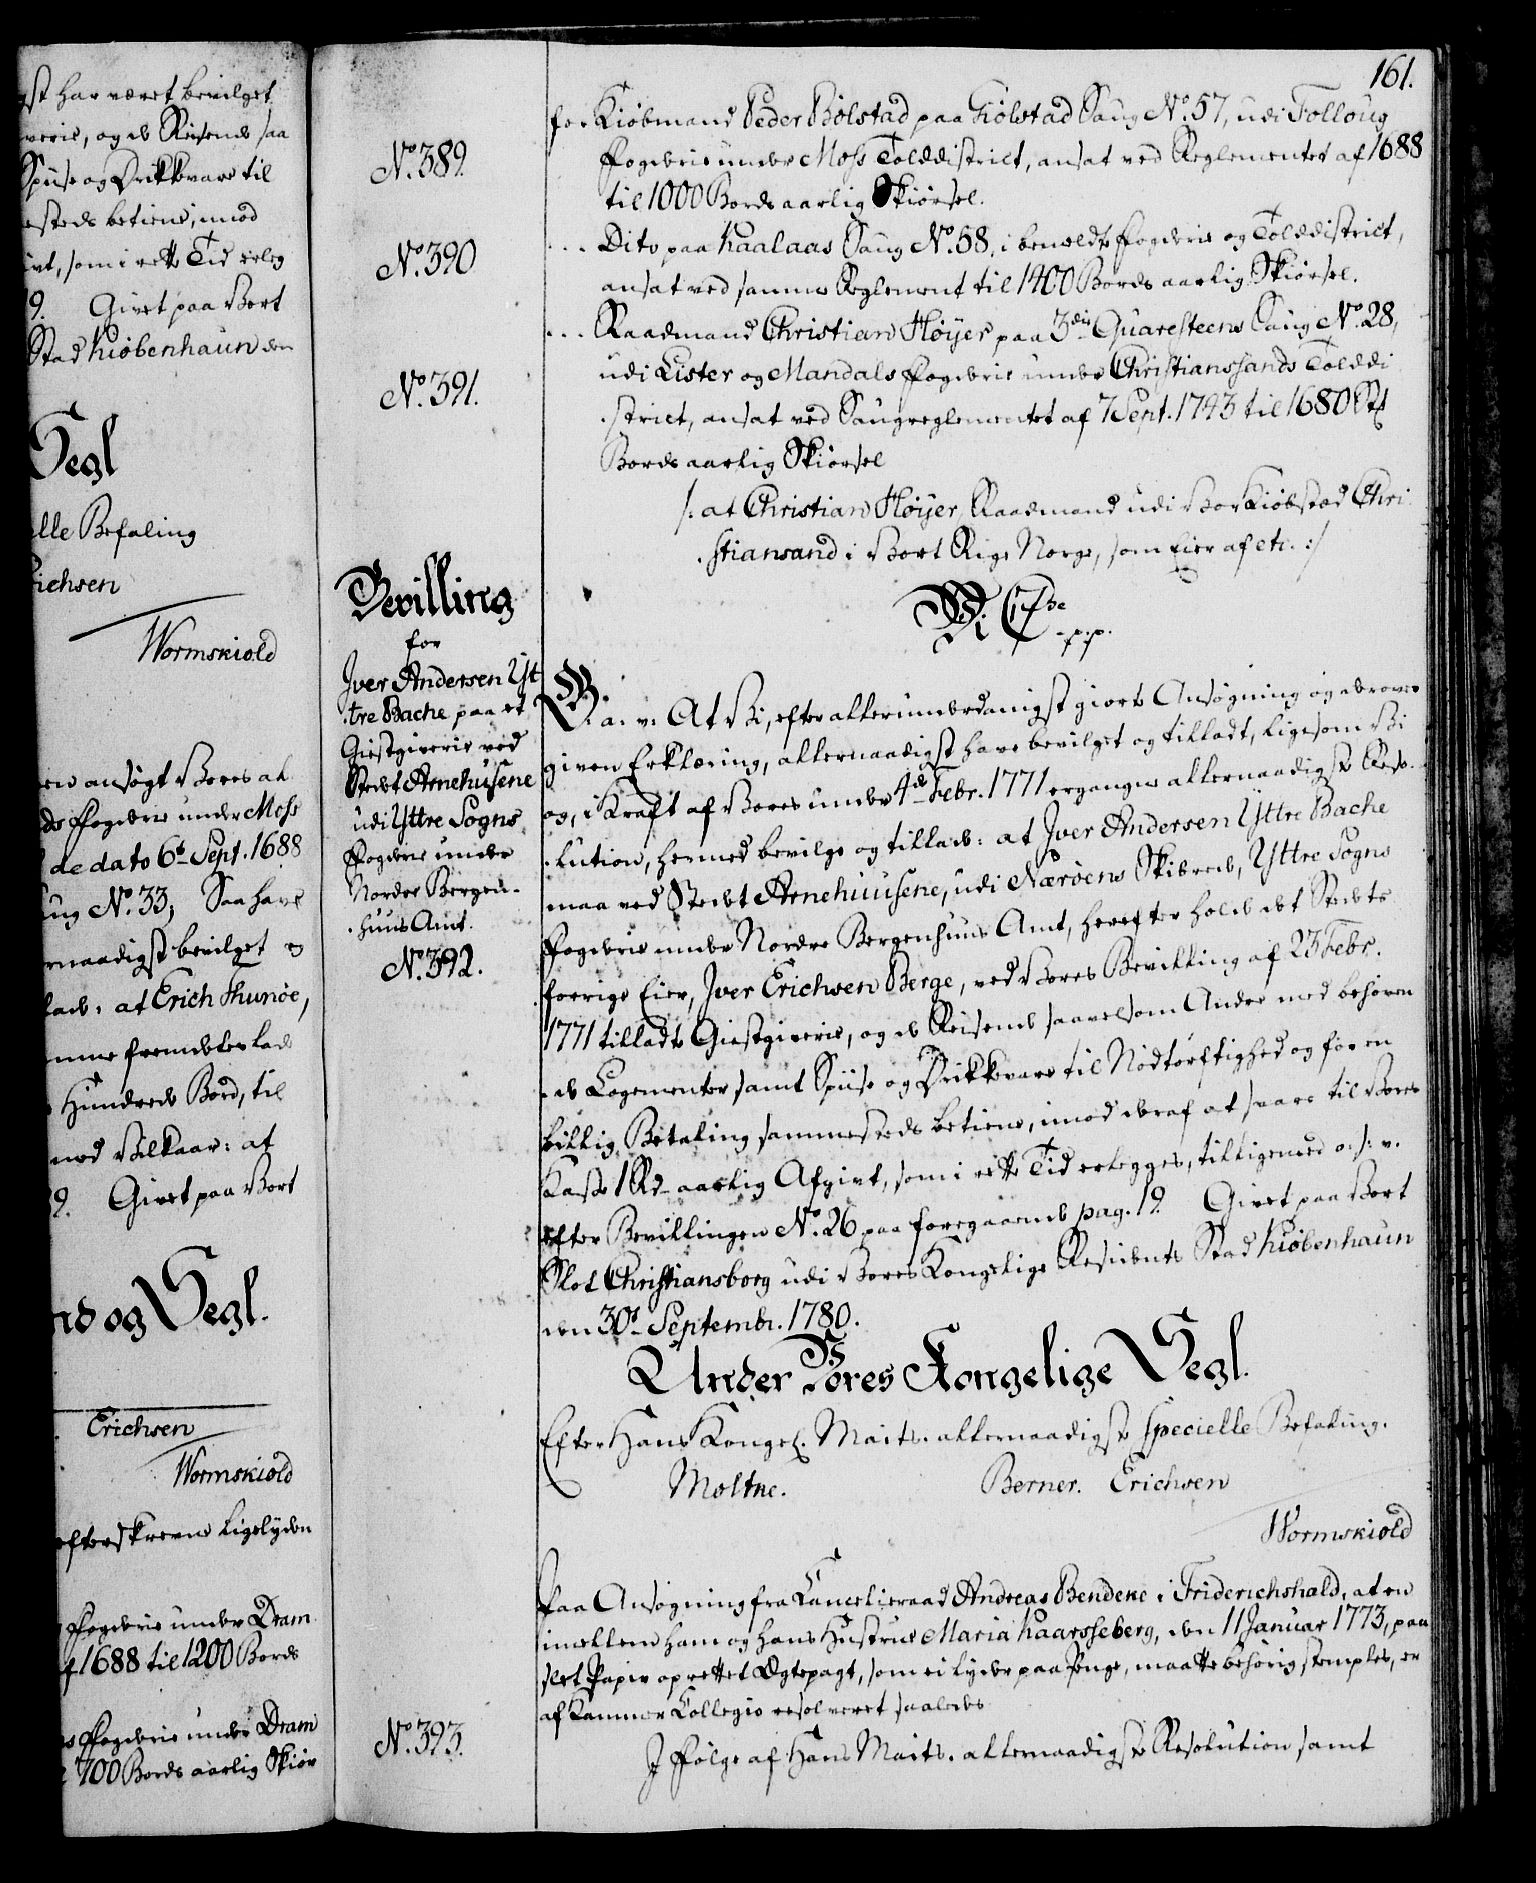 gst har været bevilget
veris, og de Reisende saa
Spiise og Drikkevare til
esteds betiene, imod
ivt, som i rette Tid erleg
9. Givet paa Vort
Stad Kiøbenhaun den
Segl
elle Befaling
Erichsen
Wormskiold
en ansøgt Vores al
ds Fogderie under Moss
de dato 6te Sept. 1688
ug No. 33, Saa have
rnaadigst bevilget og
lade: at Erich Thunøe,
mme fremdeles lade
Hundrede Bord, til
med Vilkaar: at
9. Givet paa Vort
nd og Segl.
Erichsen
Wormskiold
efterskrevne Ligelyden
Fogderie under Dram
f 1688 til 1200 Bords
s Fogderie under Dram
700 Bords aarlig Skiør
161.
No. 389.
for Kiøbmand Peder Bølstad paa Kiølstad Saug No. 57, udi Folloug
Fogderie under Moss Tolddistrict, ansat ved Reglementet af 1688
til 1000 Bords aarlig Skiørsel.
No. 390
... Dito paa Kaalaas Saug No. 58. i bemeldte Fogderie og Tolddistrict,
ansat ved samme Reglement til 1400 Bords aarlig Skiørsel.
No. 391.
... Raadmand Christian Høyer paa 3die Quaresteens Saug No. 28,
udi Lister og Mandals Fogderie under Christianssands Tolddi
strict, ansat ved Saugreglementet af 7 Sept. 1743 til 1680 Stk
Bords aarlig Skiørsel
/: at Christian Høyer, Raadmand udi Vor Kiøbstad Chri
stiansand i Vort Rige Norge, som Eier af etc. :/
Vi C 7de
p.p.
Bevilling
for
Iver Andersen Yt
tre Bache paa et
Giestgiverie ved
Stedet Arnehusene
udi Yttre Sogns
Fogderie under
Nordre Bergen-
huus Amt.
No. 392.
G. a. v. At Vi, efter allerunderdanigst giorte Ansøgning og derover
given Erklæring, allernaadigst have bevilget og tilladt, ligesom Vi
og, i Kraft af Vores under 4de Febr. 1771 ergangne allernaadigste Reso-
lution, hermed bevilge og tillade: at Iver Andersen Yttre Bache
maa ved Stedet Arnehuusene, udi Nærøens Skibrede, Yttre Sogns
Fogderie under Nordre Bergenhuus Amt, herefter holde det Stedets
forrige Eier, Iver Erichsen Berge, ved Vores Bevilling af 23 Febr.
1771 tilladte Giestgiverie, og de Reisende saavelsom Andre med behøven
de Logementer samt Spiise og Drikkevare til Nødtørftighed og for en
billig Betaling sammesteds betiene, imod deraf at svare til Vores
Kasse 1 Rd aarlig Afgivt, som i rette Tid erlegges, tilligemed o. s. v.
efter Bevillingen No. 26 paa foregaaende pag. 19. Givet paa Vort
Slot Christiansborg udi Vores Kongelige Residents Stad Kiøbenhaun
den 30te Septembr. 1780.
Under Vores Kongelige Segl.
Efter Hans Kongel. Maits. allernaadigste specielle Befaling.
Moltke. Berner. Erichsen
Wormskiold
Paa Ansøgning fra Cancelieraad Andreas Bendeke i Friderichshald, at en
imellem ham og hans Hustrue Maria Kaarsseberg, den 11 Januar 1773, paa
slet Papir oprettet Ægtepagt, som ei lyder paa Penge, maatte behørig stemples, er
af Kammer Collegio resolveret saaledes
No. 393.
I Følge af Hans Maits. allernaadigste Resolution samt